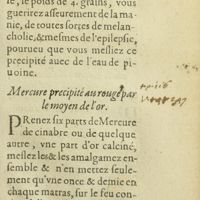 le, le poids de 4. grains, vous
guerirez asseurement de la ma-
nie, de toutes sortes de melan-
cholie, & mesmes de l'epilepsie,
pourueu que vous mesliez ce
precipité auec de l'eau de pi-
uoine.
Mercure precipité au rouge par
le moyen de l'or.
PRenez six parts de Mercure
de cinabre ou de quelque
autre, vne part d'or calciné,
meslez les & les amalgamez en-
semble & n'en mettrez seule-
ment qu'vne once & demie en
chaque matras, sur le feu con-